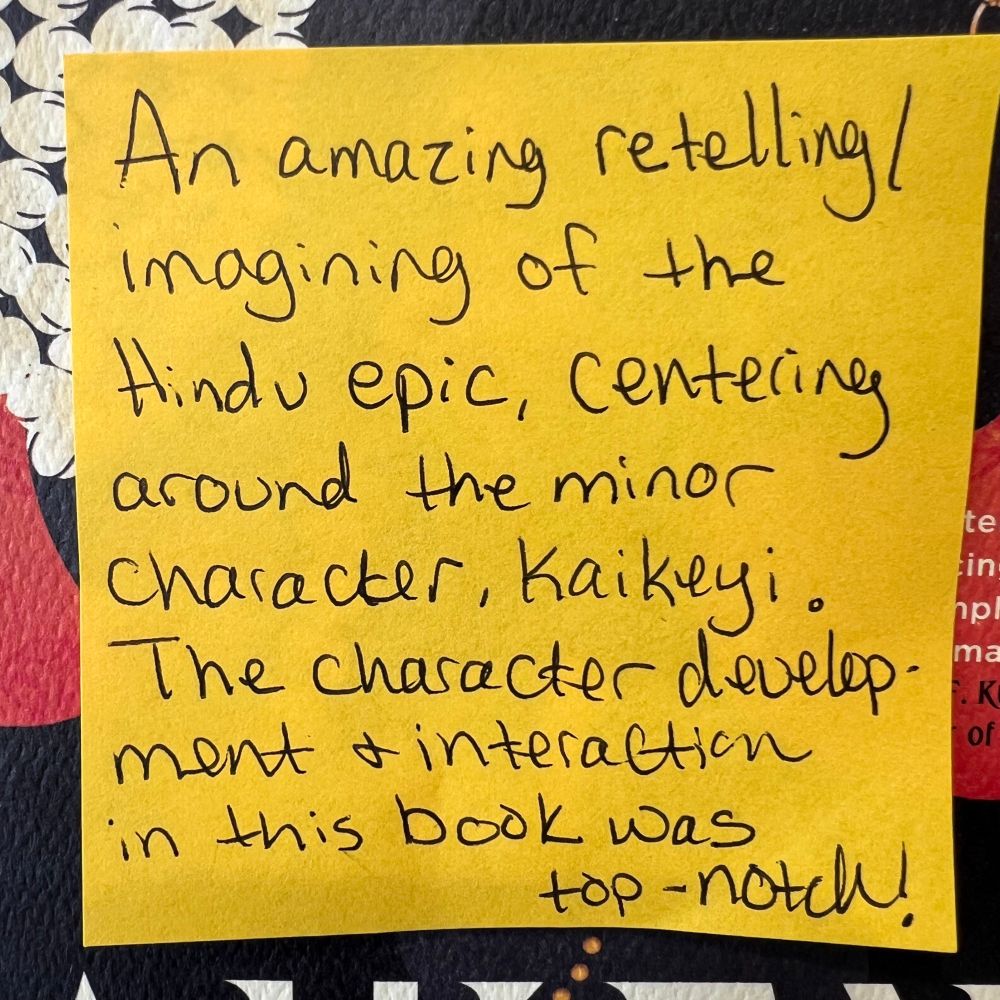 An amazing retelling/
imagining of the
Hindu epic, centering
around the minor
character, Kaikeyi.
The character develop-
ment & interaction
in this book was
top-notch!
F. K
of